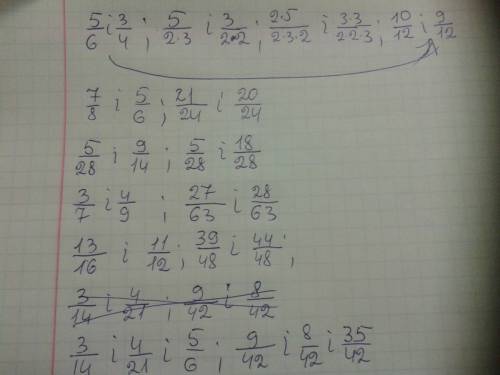 5/6 і 3/4 ; 5/2·3 і 3/2·2 ; 2·5/2·3·2 і 3·3/2·2·3 ; 10/12 і 9/12
7/8 і 5/6 ; 21/24 і 20/24
5/28 і 9/14 ; 5/28 і 18/28
3/7 і 4/9 ; 27/63 і 28/63
13/16 і 11/12 ; 39/48 і 44/48 ;
3/14 і 4/21 ; 9/42 і 8/42
3/14 і 4/21 і 5/6 ; 9/42 і 8/42 і 35/42